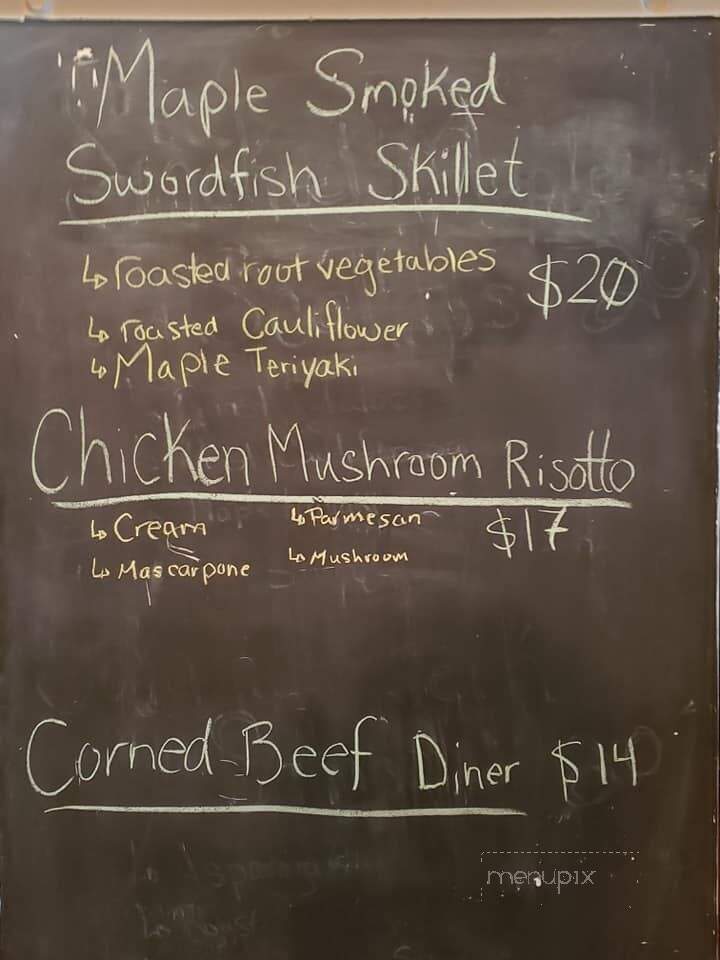 Maple Smoked
Swordfish Skillet
↳ roasted root vegetables $20
↳ roasted Cauliflower
↳ Maple Teriyaki
Chicken Mushroom Risotto
↳ Cream ↳ Parmesan $17
↳ Mascarpone ↳ Mushroom
Corned Beef Diner $14
menupix